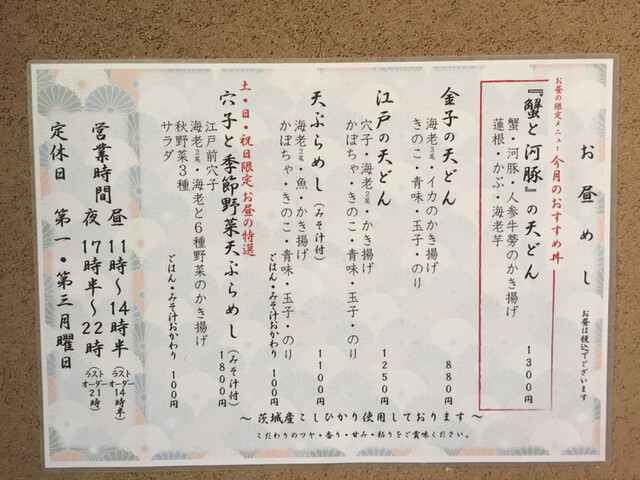 お昼めし
お昼は税込でございます
お昼の限定メニュー 今月のおすすめ丼
『蟹と河豚』の天どん
1300円
蟹・河豚・人参牛蒡のかき揚げ
蓮根・かぶ・海老芋
金子の天どん
880円
海老3尾・イカのかき揚げ
きのこ・青味・玉子・のり
江戸の天どん
1250円
穴子・海老2尾・かき揚げ
かぼちゃ・きのこ・青味・玉子・のり
天ぷらめし(みそ汁付)
1100円
海老2尾・魚・かき揚げ
かぼちゃ・きのこ・青味・玉子・のり
ごはん・みそ汁おかわり 100円
土・日・祝日限定 お昼の特選
穴子と季節野菜天ぷらめし(みそ汁付)
1800円
江戸前穴子
海老2尾・海老と6種野菜のかき揚げ
秋野菜3種
サラダ
ごはん・みそ汁おかわり 100円
営業時間 昼 11時〜14時半(ラストオーダー14時半)
夜 17時半〜22時(ラストオーダー21時)
定休日 第一・第三月曜日
〜茨城産こしひかり使用しております〜
こだわりのツヤ・香り・甘み・粘りをご賞味ください。